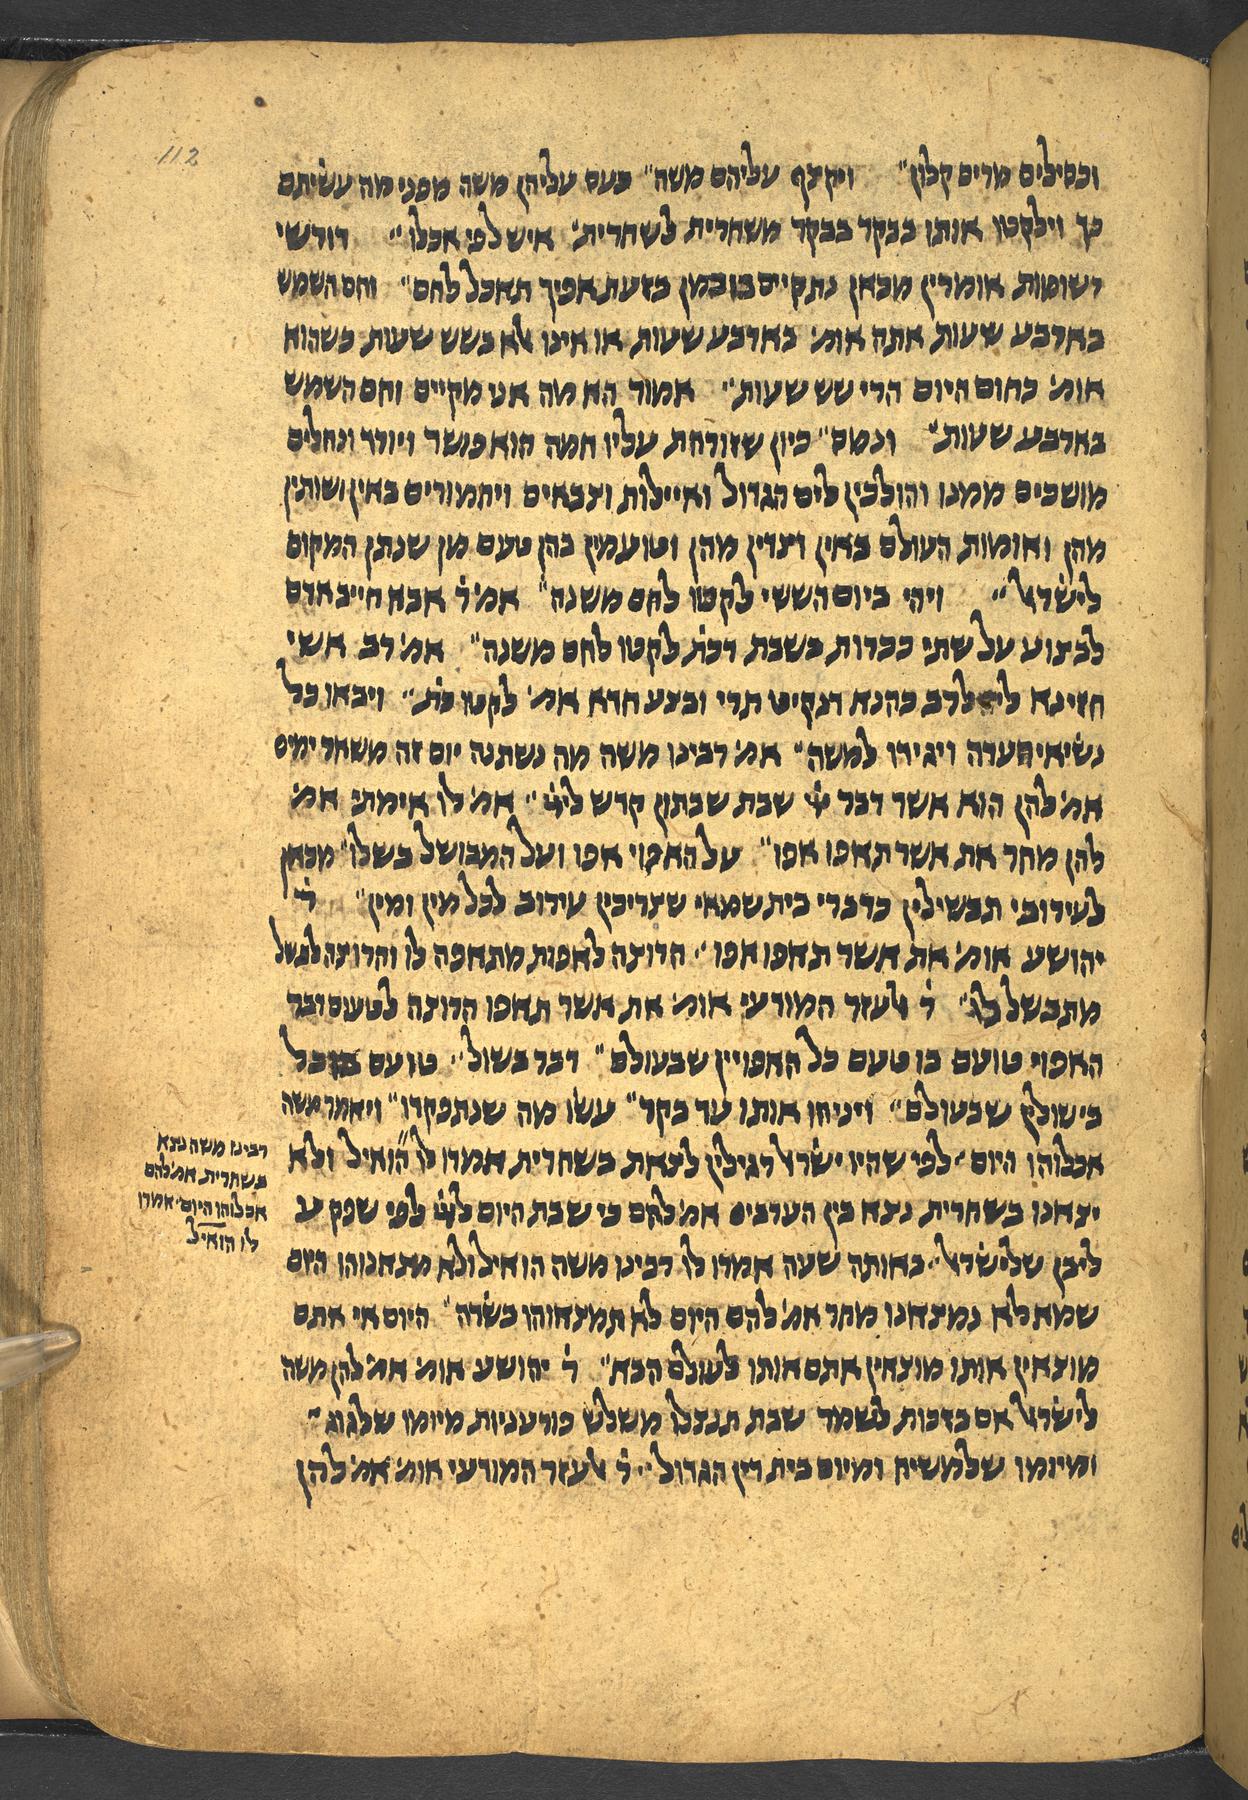 112
וכסילים מרים קלון״ ויקצף עליהם משה״ כעס עליהן משה מפני מה עשיתם
כך וילקטו אותו בבקר בבקר משחרית לשחרית״ איש לפי אכלו״ דורשי
רשומות אומרין מכאן נתקיים בו במן בזעת אפיך תאכל לחם״ וחם השמש
בארבע שעות אתה אומ׳ בארבע שעות או אינו אלא בשש שעות כשהוא
אומ׳ כחום היום הרי שש שעות״ אמור הא מה אני מקיים וחם השמש
בארבע שעות״ ונמס״ כיון שזורחת עליו חמה הוא פושר ויורד ונחלים
מושכים ממנו והולכין לים הגדול ואיילות וצבאים ויחמורים באין ושותין
מהן ואומות העולם באין וצדין מהן וטועמין בהן טעם מן שנתן המקום
לישראל״ ויהי ביום הששי לקטו לחם משנה״ אמ׳ ר׳ אבא חייב אדם
לבצוע על שתי ככרות בשבת דכת׳ לקטו לחם משנה״ אמ׳ רב אשי
חזינא ליה לרב כהנא דנקיט תרי ובצע חדא אמ׳ לקטו כת׳״ ויבאו כל
נשיאי העדה ויגידו למשה״ אמ׳ רבינו משה מה נשתנה יום זה משאר ימים
אמ׳ להן הוא אשר דבר יי׳ שבת שבתון קדש ליי׳״ אמ׳ לו אימתי אמ׳
להן מחר את אשר תאפו אפו״ על האפוי אפו ועל המבושל בשלו״ מכאן
לעירובי תבשילין כדברי בית שמאי שצריכין עירוב לכל מין ומין״ ר׳
יהושע אומ׳ את אשר תאפו אפו״ הרוצה לאפות מתאפה לו והרוצה לבשל
מתבשל לו״ ר׳ אלעזר המודעי אומ׳ את אשר תאפו הרוצה לטעום דבר
האפוי טועם בו טעם כל האפויין שבעולם״ דבר בשול״ טועם בו כל
בישולין שבעולם״ ויניחו אותו עד בקר״ עשו מה שנתפקדו״ ויאמר משה
אכלוהו היום״ לפי שהיו ישראל רגילין לצאת בשחרית אמרו לו הואיל ולא
יצאנו בשחרית נצא בין הערבים אמ׳ להם כי שבת היום ליי׳ לפי שפקע
ליבן שלישראל״ באותה שעה אמרו לו רבינו משה הואיל ולא מצאנוהו היום
שמא לא נמצאנו מחר אמ׳ להם היום לא תמצאוהו בשדה״ היום אי אתם
מוצאין אותו מוצאין אתם אותו לעולם הבא״ ר׳ יהושע אומ׳ אמ׳ להן משה
לישראל אם בזכות לשמר שבת תנצלו משלש פורעניות מיומו שלגוג״
ומיומו שלמשיח ומיום בית דין הגדול״ ר׳ אלעזר המודעי אומ׳ אמ׳ להן
רבינו משה נצא
בשחרית אמ׳ להם
אכלוהו היום״ אמרו
לו הואיל